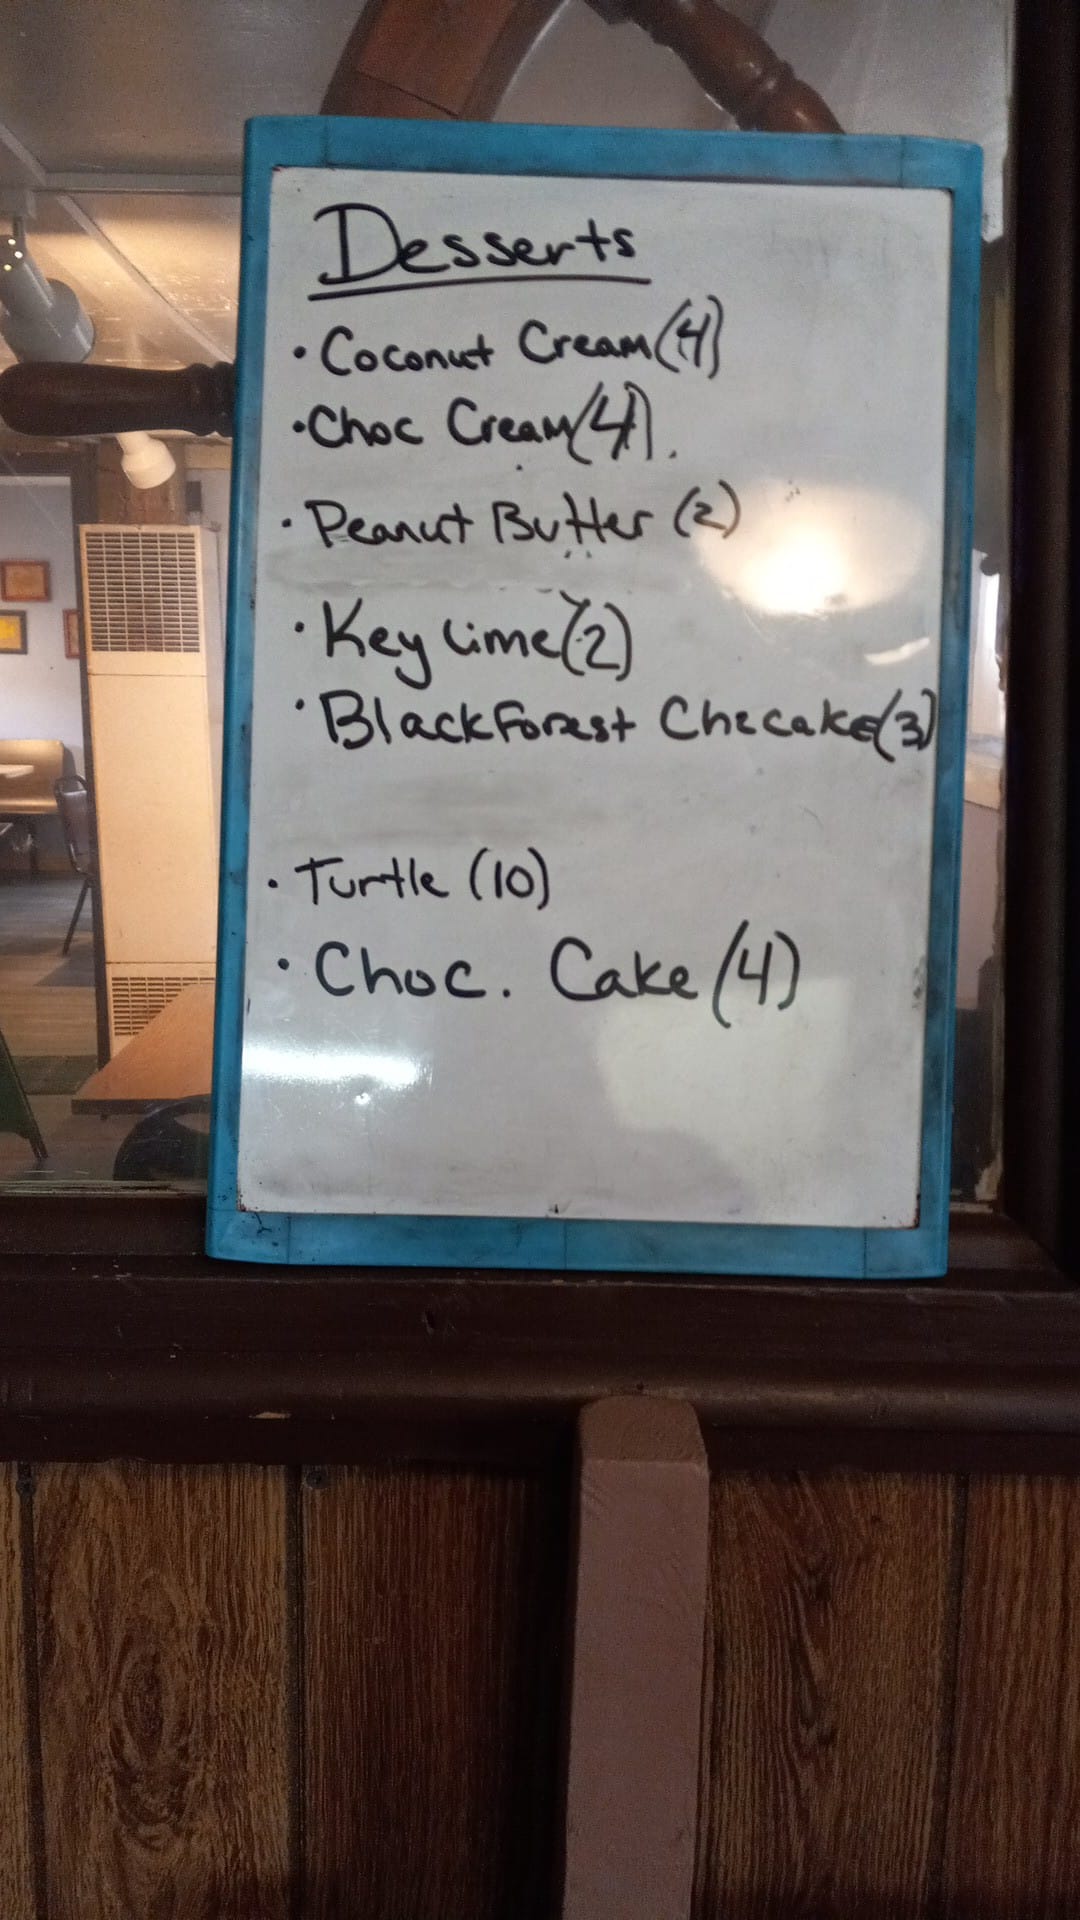 Desserts
• Coconut Cream (4)
• Choc Cream (4).
• Peanut Butter (2)
• Key Lime (2)
• Black Forest Checake (3)
• Turtle (10)
• Choc. Cake (4)